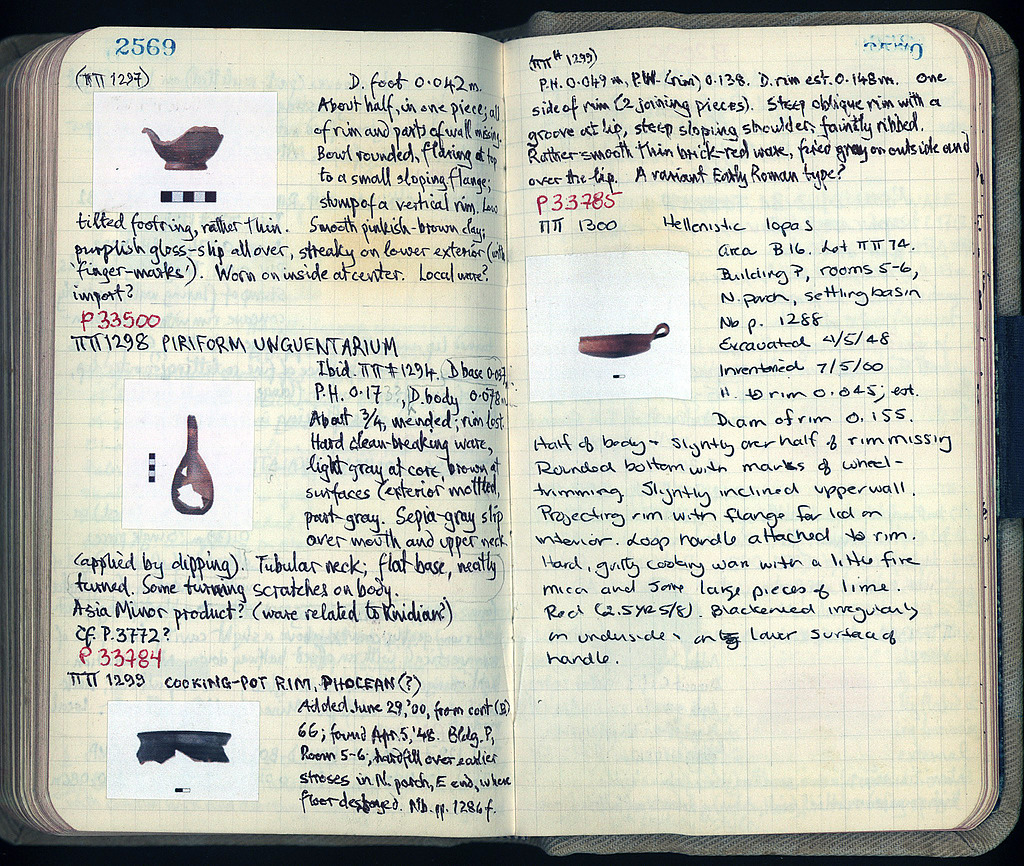 2569
(ΠΠ 1297)
D. foot 0.042 m.
About half, in one piece; all
of rim and parts of wall missing.
Bowl rounded, flaring at top
to a small sloping flange;
stump of a vertical rim. Low
tilted footring, rather thin. Smooth pinkish-brown clay;
purplish gloss-slip all over, streaky on lower exterior (with
'finger-marks'). Worn on inside at center. Local ware?
import?
P 33500
ΠΠ 1298 PIRIFORM UNGUENTARIUM
Ibid. ΠΠ # 1294. D base 0.037,
P.H. 0.17 , D. body 0.078m
About 3/4, mended; rim lost.
Hard clean-breaking ware,
light gray at core, brown at
surfaces (exterior mottled,
part-gray. Sepia-gray slip
over mouth and upper neck
(applied by dipping). Tubular neck; flat base, neatly
turned. Some turning scratches on body.
Asia Minor product? (ware related to Knidian?)
Cf. P. 3772?
P 33784
ΠΠ 1299 COOKING-POT RIM, PHOCEAN (?)
Added June 29, '00, from cont (B)
66; found Apr. 5, '48. Bldg. P,
Room 5-6; hardfill over earlier
stroses in N. porch, E end, where
floor destroyed. Nb. pp. 1286 f.
(ΠΠ # 1299)
P.H. 0.049 m. P.W. (rim) 0.138. D. rim est. 0.148 m. One
side of rim (2 joining pieces). Steep oblique rim with a
groove at lip, steep sloping shoulder, faintly ribbed.
Rather smooth thin brick-red ware, fired gray on outside and
over the lip. A variant Early Roman type?
P 33785
ΠΠ 1300 Hellenistic lopas
Area B 16. Lot ΠΠ 74.
Building P, rooms 5-6,
N. porch, settling basin
Nb p. 1288
Excavated 4/5/48
Inventoried 7/5/00
H. to rim 0.045; est.
Diam of rim 0.155.
Half of body + slightly over half of rim missing
Rounded bottom with marks of wheel-
trimming. Slightly inclined upper wall.
Projecting rim with flange for lid on
interior. Loop handle attached to rim.
Hard, gritty cooking ware with a little fine
mica and some large pieces of lime.
Red (2.5YR 5/8). Blackened irregularly
on underside + on lower surface of
handle.